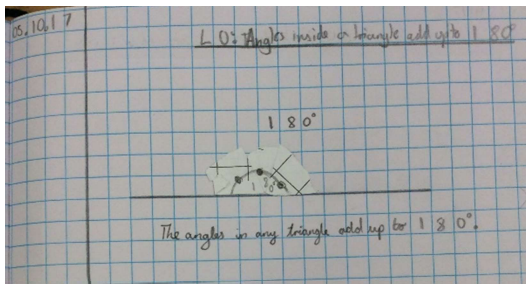 05.10.17
L O: Angles inside a triangle add up to 180°
180°
180°
The angles in any triangle add up to 180°.